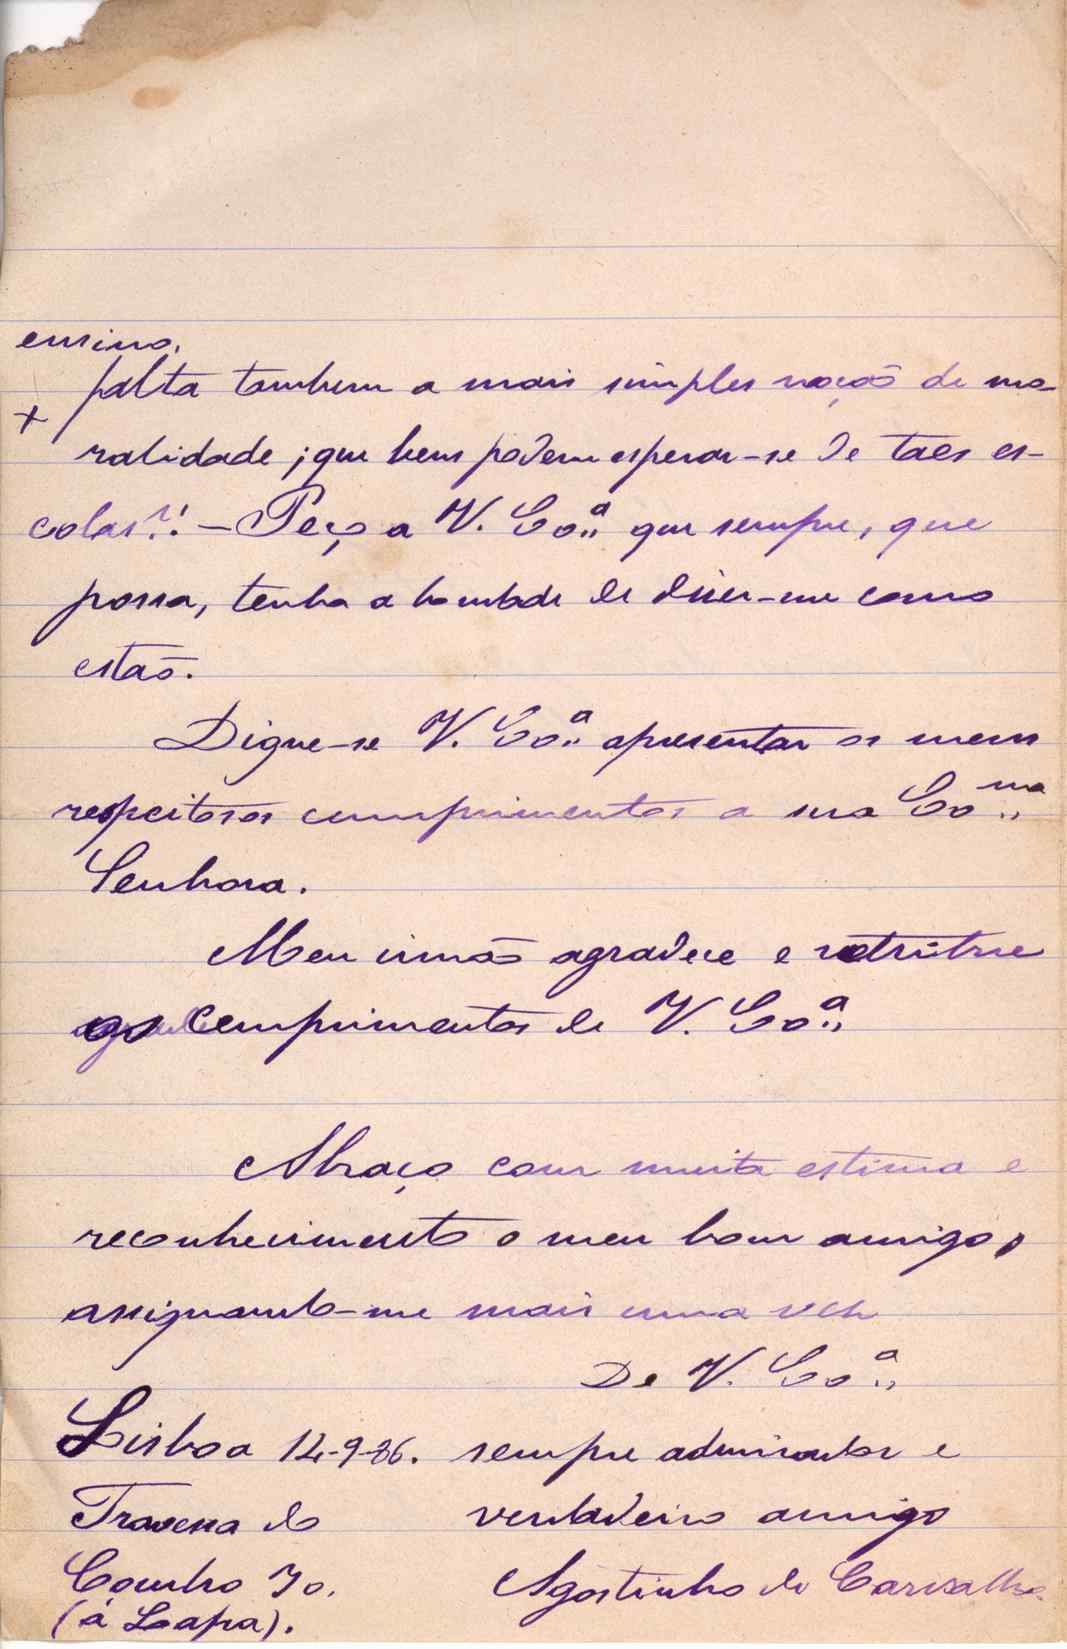 ensino.
+ falta tambem a mais simples noção de mo-
ralidade ; que bem podem esperar-se de taes es-
colas?! — Peço a V. Exª que sempre, que
possa, tenha a bondade de dizer-me como
estão.
Digne-se V. Exª apresentar os meus
respeitosos cumprimentos a sua Exma
Senhora.
Meu irmão agradece e retribue
os cumprimentos de V. Exª
Abraço com muita estima e
reconhecimento o meu bom amigo,
assignando-me mais uma vez
De V. Exª
Lisboa 14-9-86. sempre admirador e
Travessa do verdadeiro amigo
Combro 70. Agostinho de Carvalho.
(á Lapa).